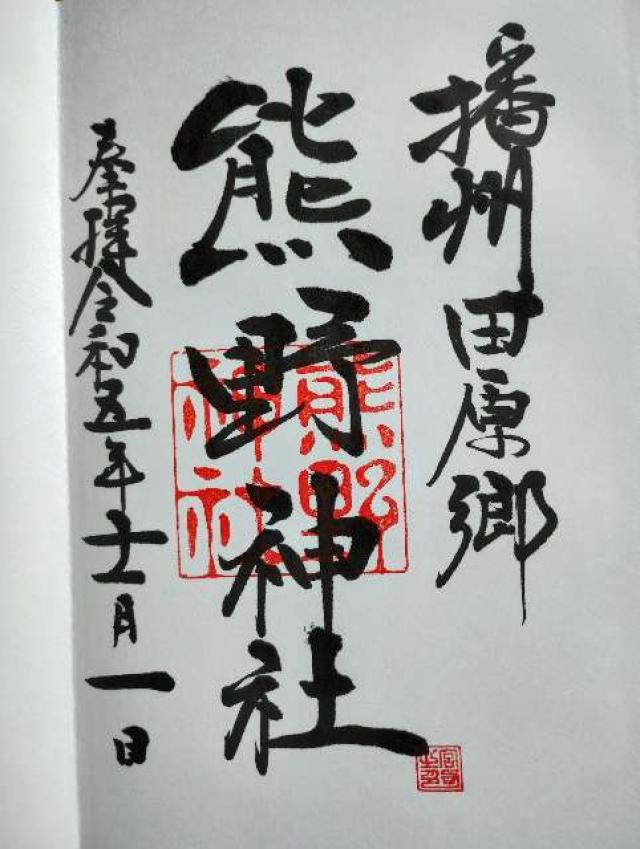 播州田原郷
熊野神社
熊野
神社
奉拝令和五年十一月一日